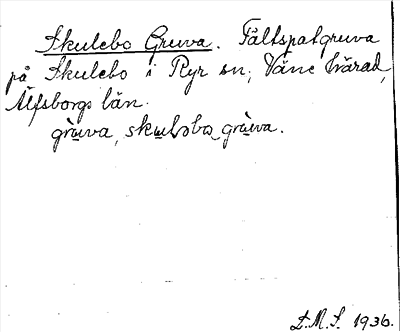 Skulebo Gruva. Fältspatgruva
på Skulebo i Ryr sn, Väne härad,
Älfsborgs län.
grùva, skulɘbo_grùva.
D.M.S. 1936.